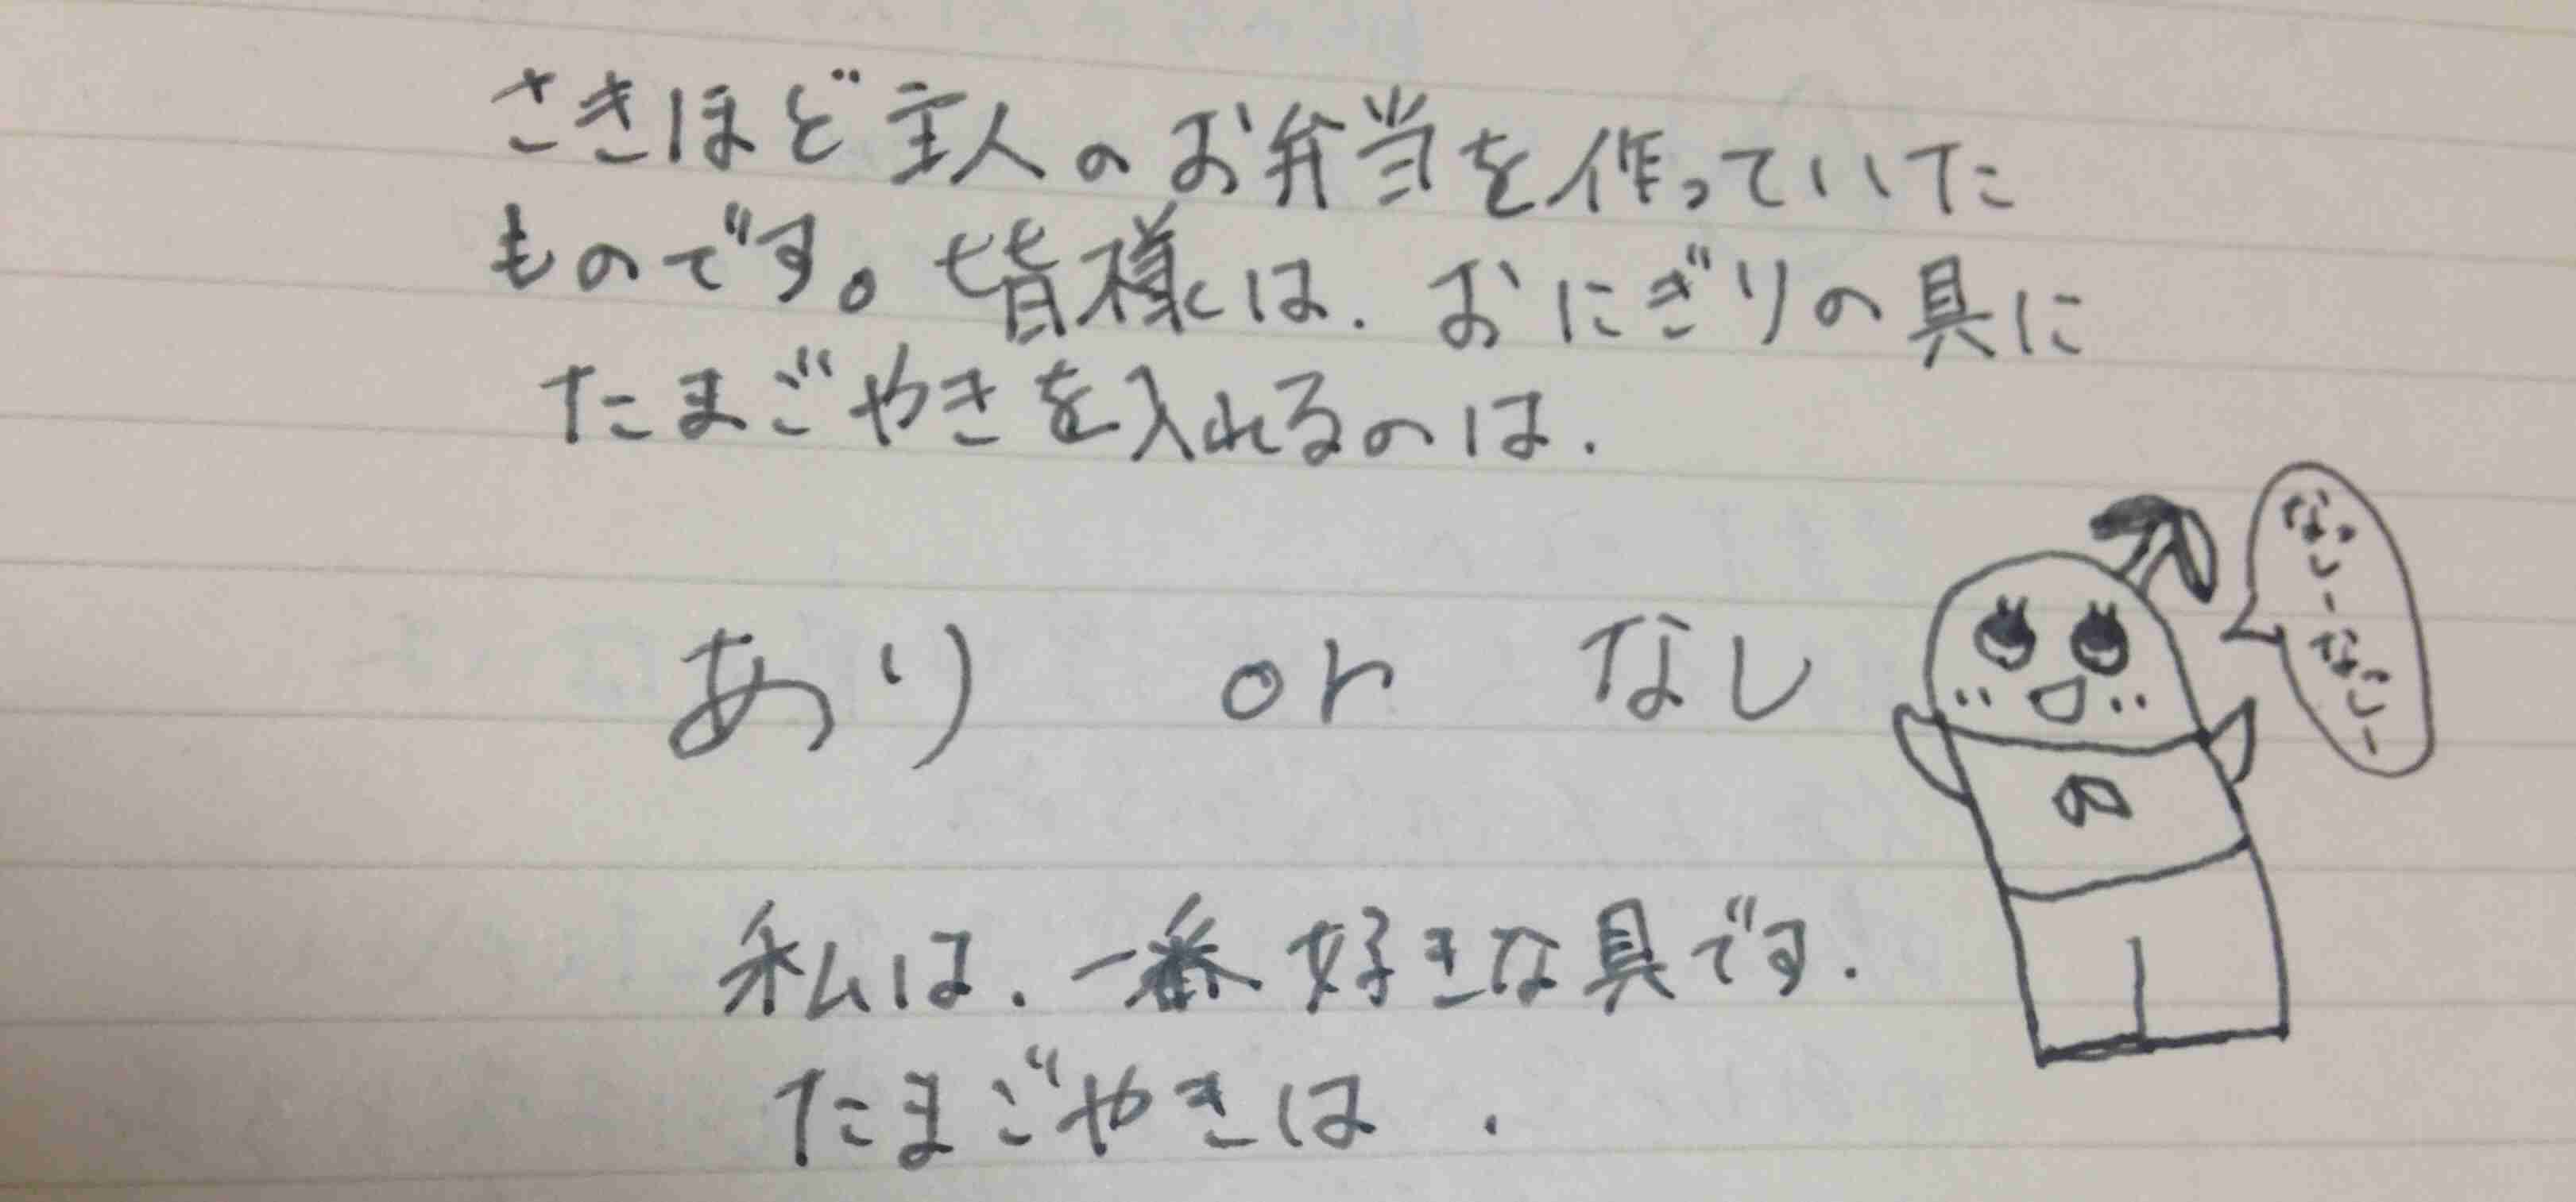 さきほど主人のお弁当を作っていた
ものです。皆様は.おにぎりの具に
たまごやきを入れるのは.
あり or なし
なっしーなっしー
の
私は.一番好きな具です.
たまごやきは.